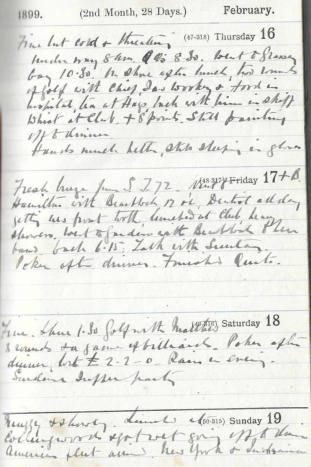 1899. (2nd Month, 28 Days.) February.
(47-318) Thursday 16
Fine but cold & threatening
under way 8 am. 8.30. Went to Grassy
bay 10.30. On shore after lunch, two rounds
of golf with Chief, Saw Workey & Ford in
hospital, tea at Hags, back with him in skiff
Whist at Club. + 8 points. Still painting
off to dinner
Hands much better, still sleeping in gloves
(48-317) Friday 17
Fresh breeze from S. 72. Went to
Hamilton with 12 o'c, Dentist all day
getting front tooth lunched at Club heavy
showers, went to garden with & her
band. back 6.15. Talk with Sunday.
Poker after dinner. Finished
Saturday 18
Fine. Shore 1.30 Golf with
3 rounds & a game of billiards. Poker after
dinner, lost £2-2-0. Rain in evening.
Sundaes Supper party
(50-315) Sunday 19
& showery. Lunch at
Collingwoods & got wet going off to dinner
American fleet arrived. New York &